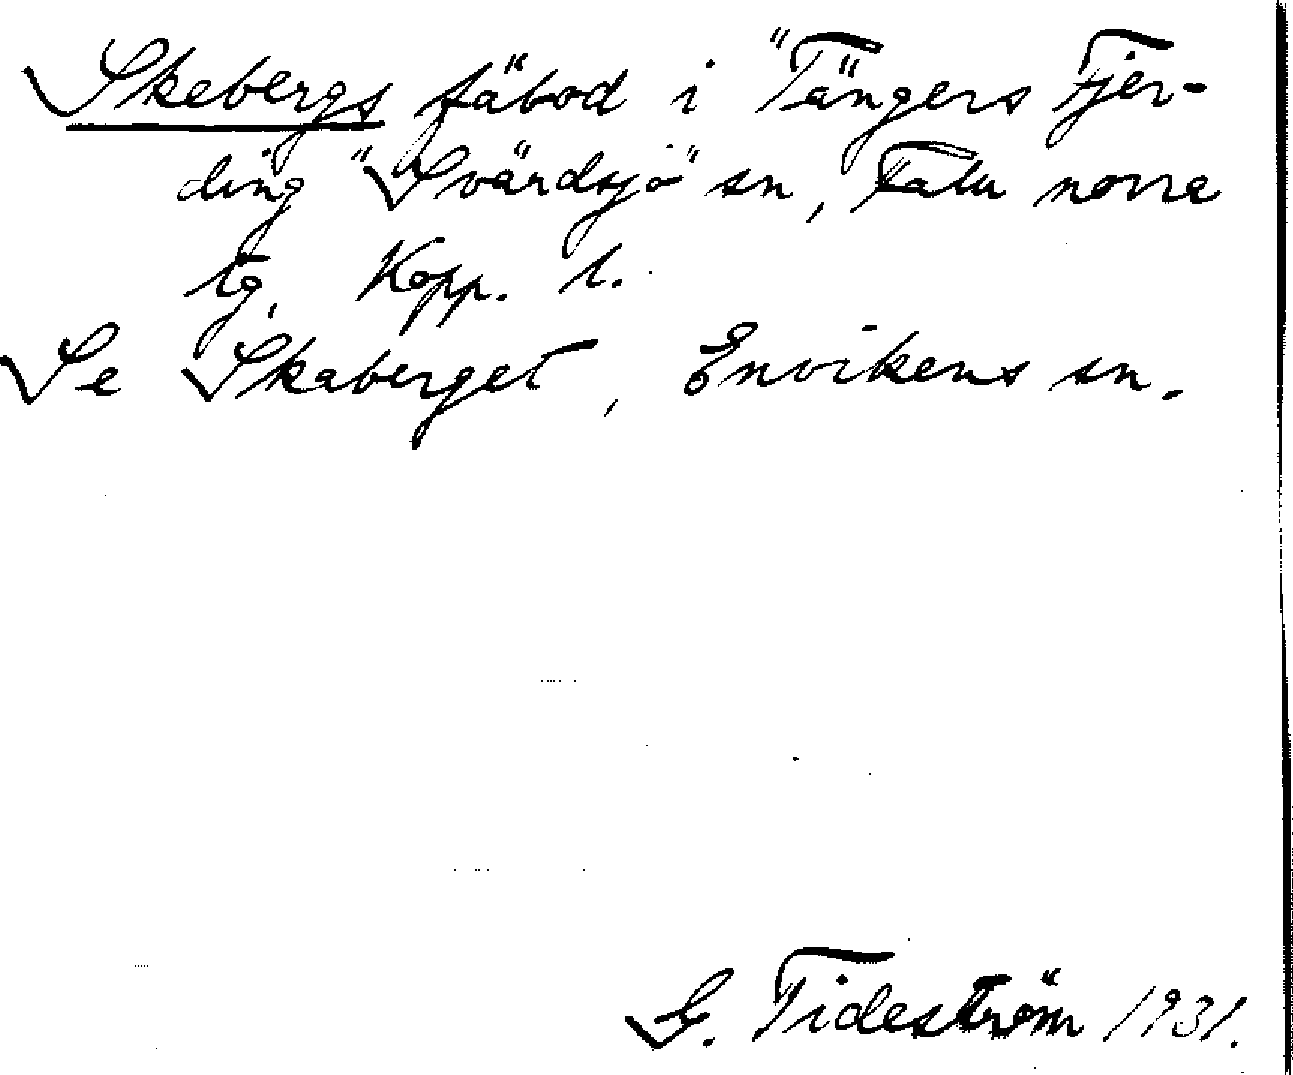 Skebergs fäbod i "Tängers Fjer-
ding" Svärdsjö" sn, Falu norra
tg, Kopp. l.
Se Skaberget, Envikens sn.
G. Tideström 1931.